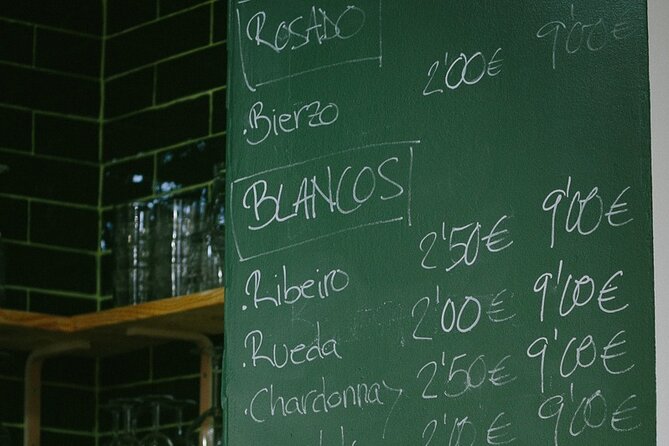 ROSADO
.Bierzo 2'00€ 9'00€
BLANCOS
.Ribeiro 2'50€ 9'00€
.Rueda 2'00€ 9'00€
.Chardonnay 2'50€ 9'00€
9'00€